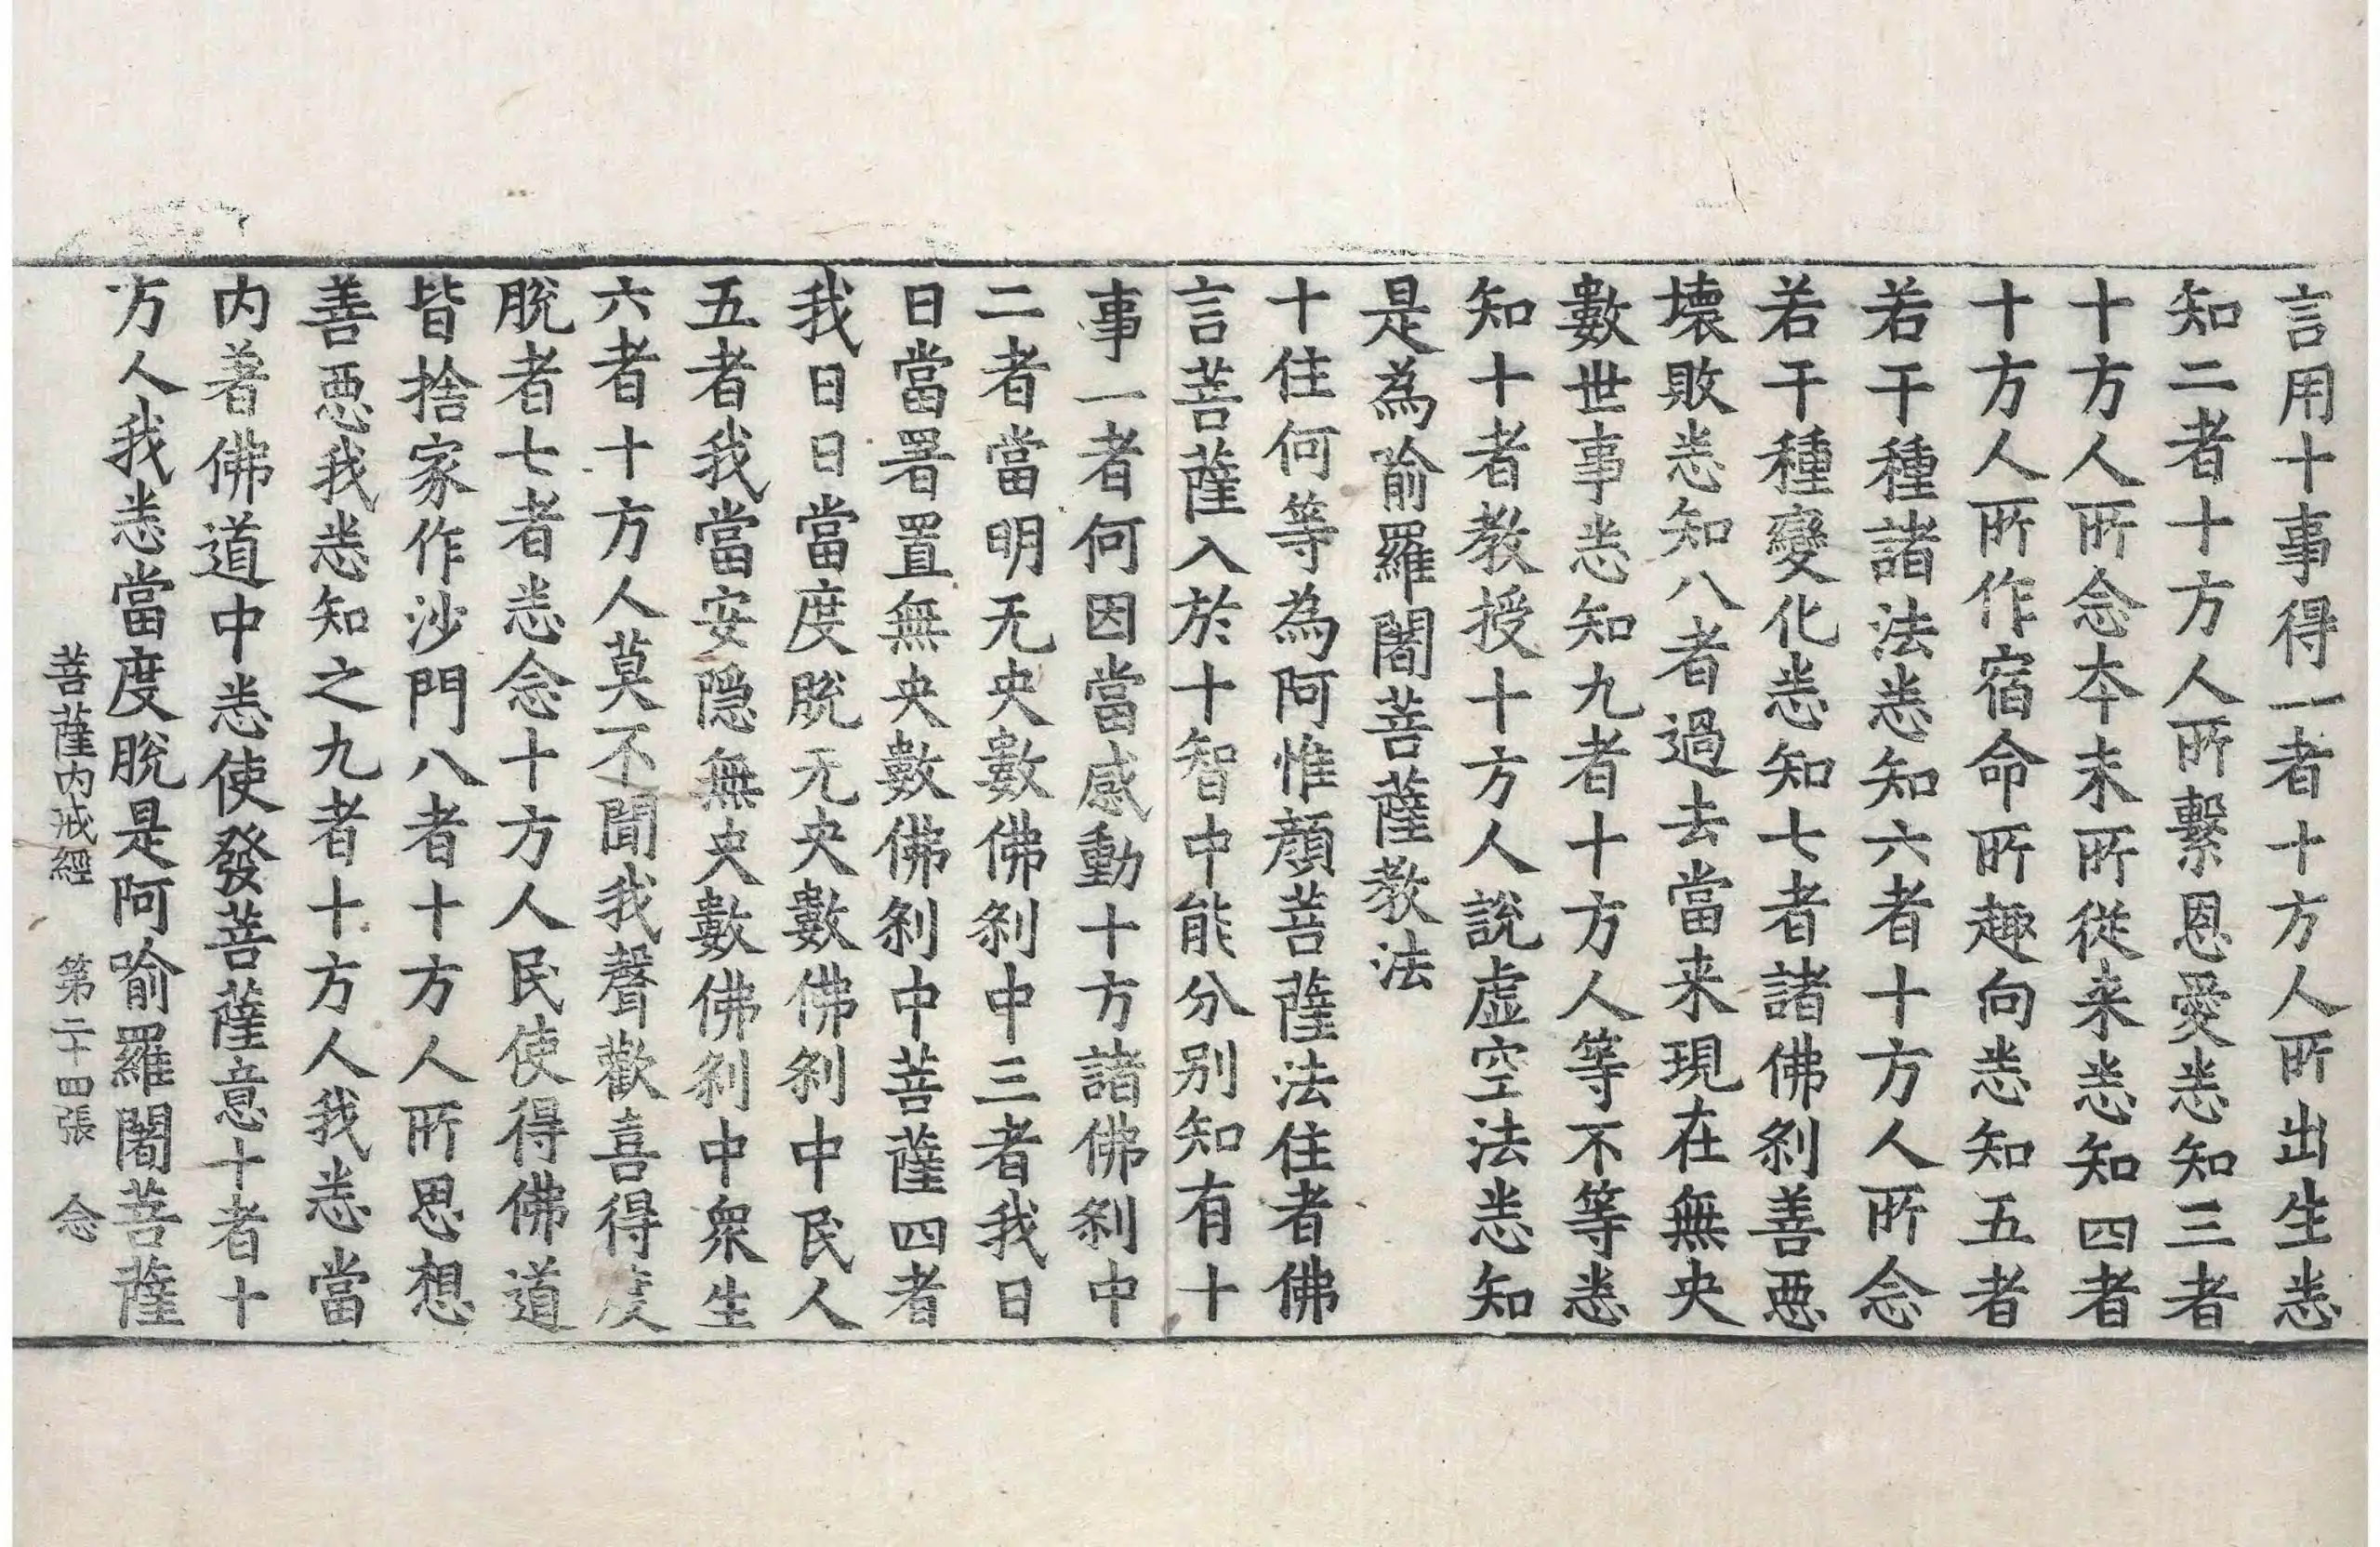 言用十事得一者十方人所出生悉
知二者十方人所繫恩愛悉知三者
十方人所念本末所從来悉知四者
十方人所作宿命所趣向悉知五者
若干種諸法悉知六者十方人所念
若干種變化悉知七者諸佛剎善惡
壞敗悉知八者過去當来現在無央
數世事悉知九者十方人等不等悉
知十者教授十方人說虛空法悉知
是為喻羅闍菩薩教法
十住何等為阿惟顏菩薩法住者佛
言菩薩入於十智中能分別知有十
事一者何因當感動十方諸佛剎中
二者當明无央數佛剎中三者我日
日當署置無央數佛剎中菩薩四者
我日日當度脫无央數佛剎中民人
五者我當安隱無央數佛剎中衆生
六者十方人莫不聞我聲歡喜得度
脫者七者悉念十方人民使得佛道
皆捨家作沙門八者十方人所思想
善惡我悉知之九者十方人我悉當
内著佛道中悉使發菩薩意十者十
方人我悉當度脫是阿喻羅闍菩薩
菩薩内戒經 第二十四張 念